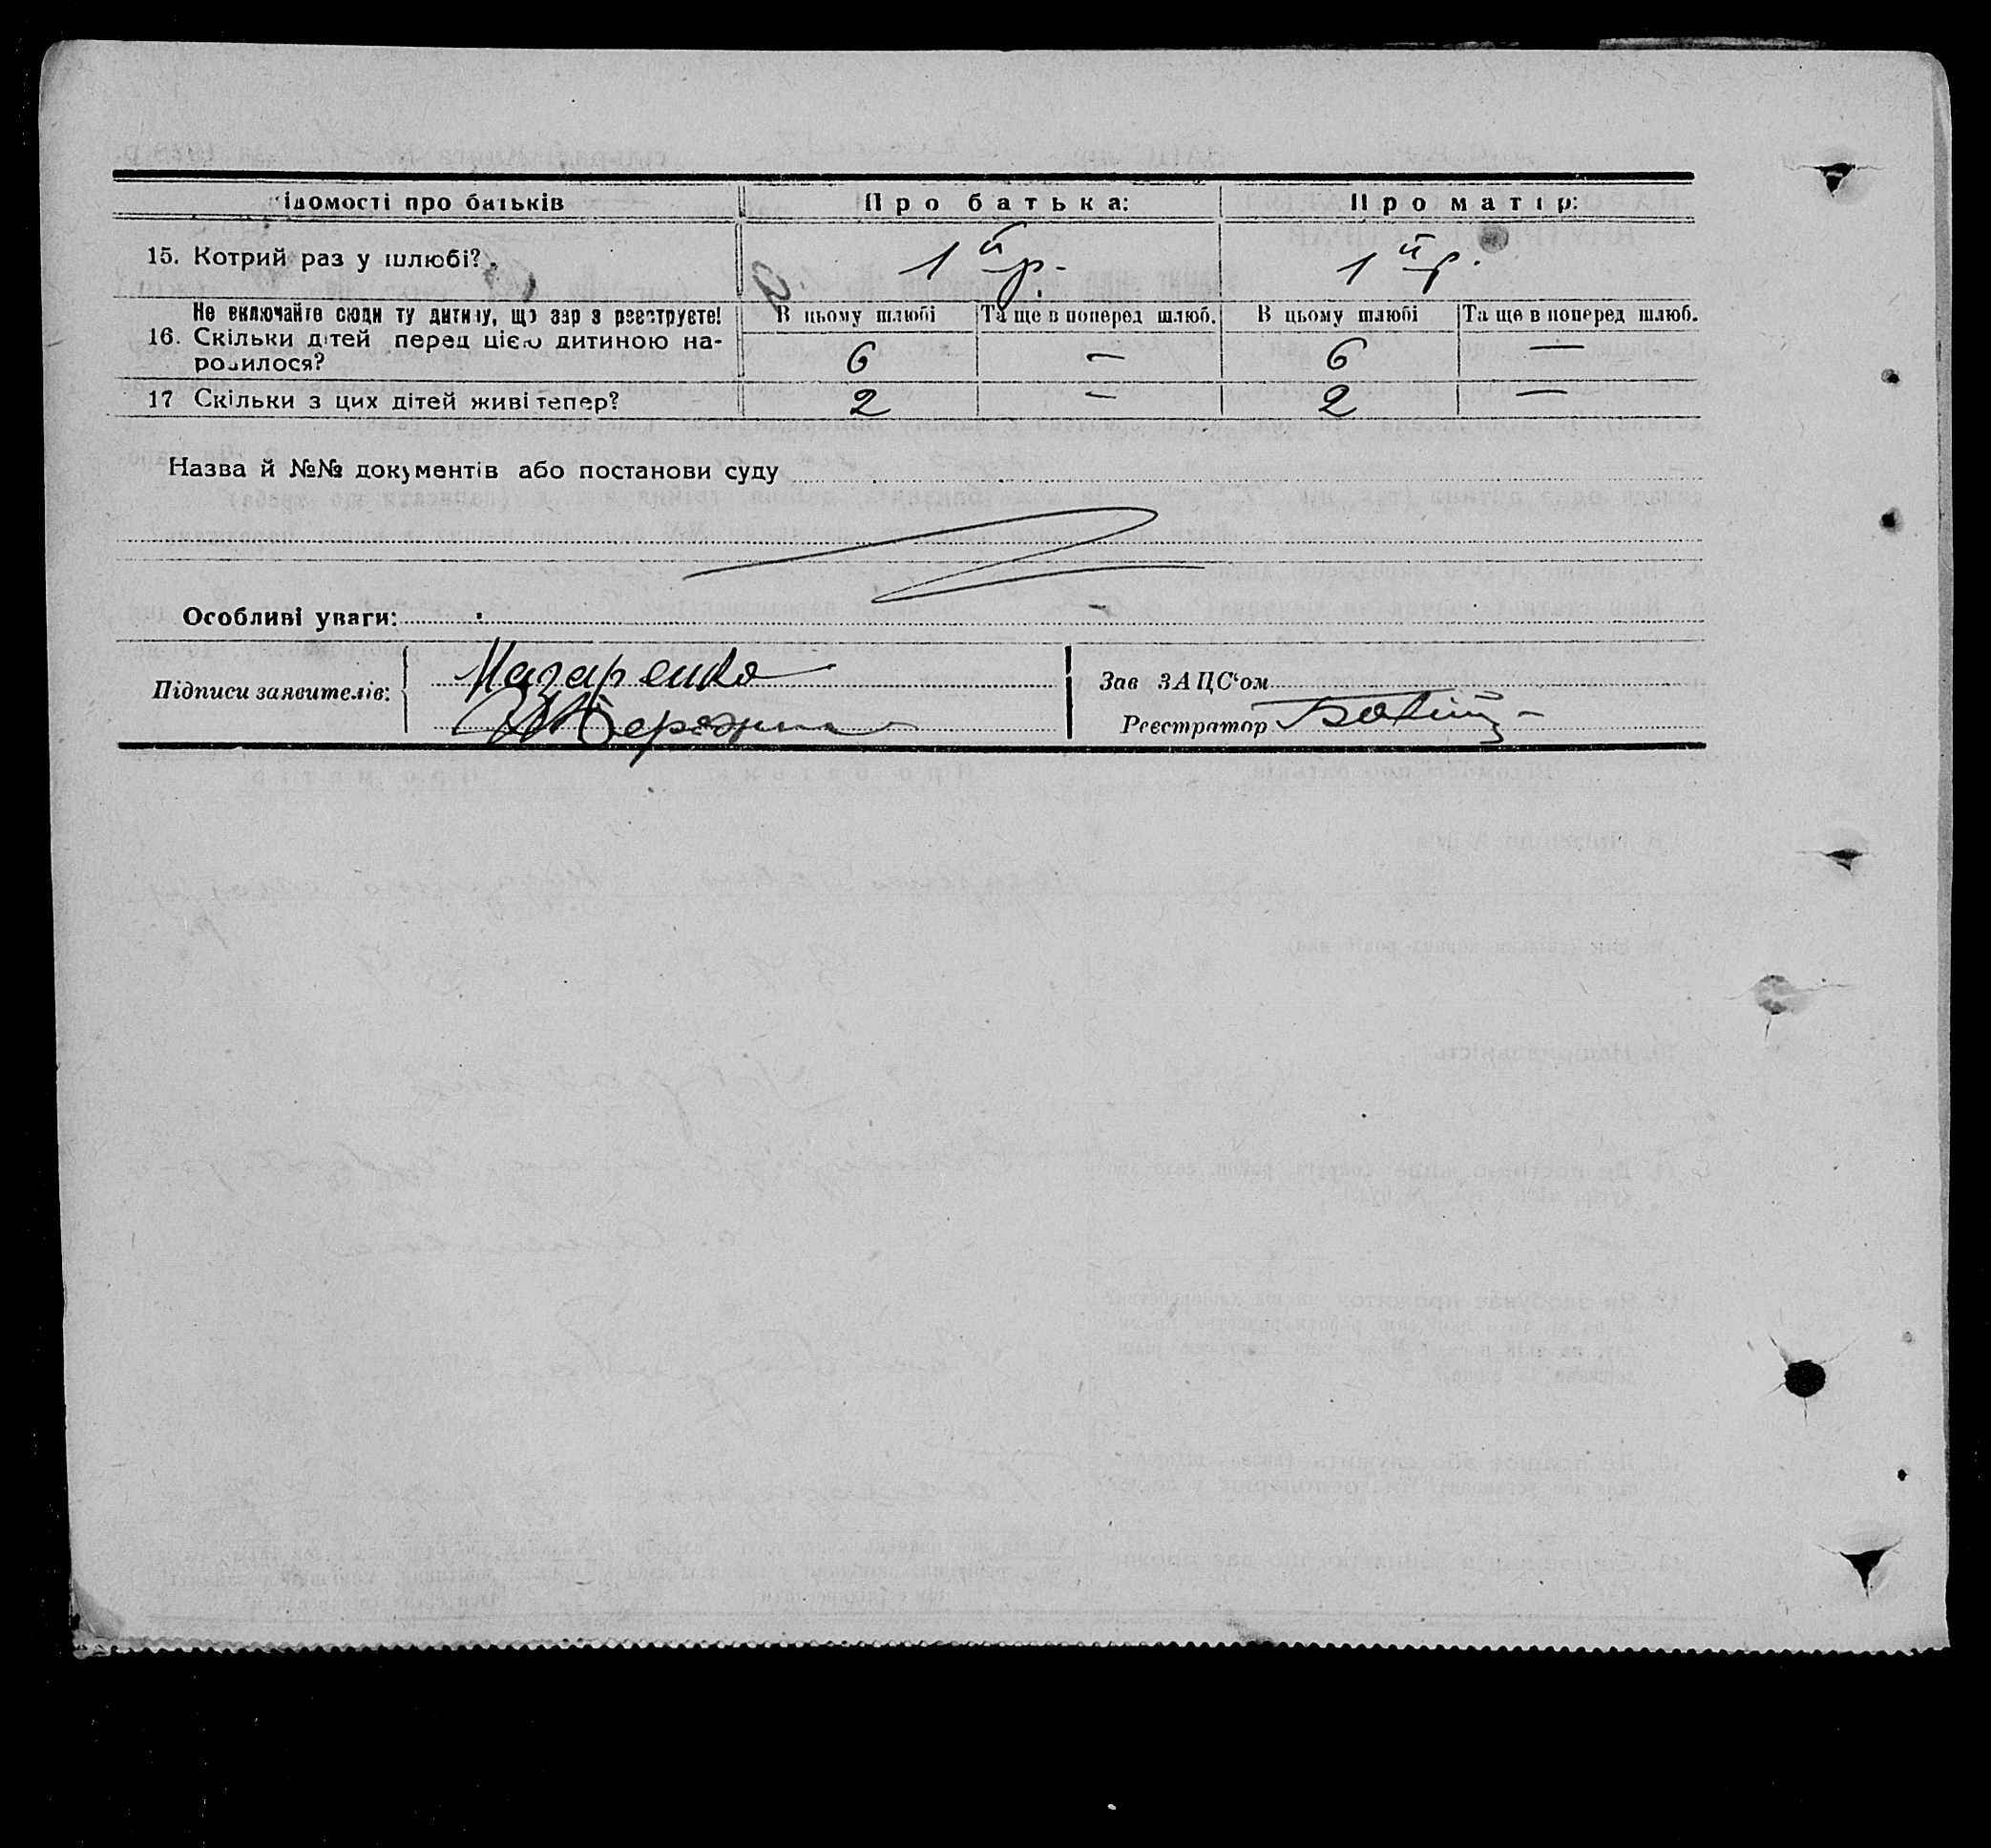 ідомості про батьків Про батька: Про матір:
15. Котрий раз у шлюбі? 1й р. 1й р.
Не включайте сюди ту дитину, що зараз реєструєте! В цьому шлюбі Та ще в поперед шлюб. В цьому шлюбі Та ще в поперед шлюб.
16. Скільки дітей перед цією дитиною на-
родилося? 6 — 6 —
17 Скільки з цих дітей живі тепер? 2 — 2 —
Назва й №№ документів або постанови суду
Особливі уваги:
Підписи заявителів: Назаренко
Зав ЗАЦС‘ом
Реєстратор